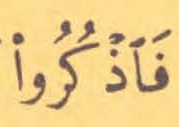 فَٱذْكُرُوا۟